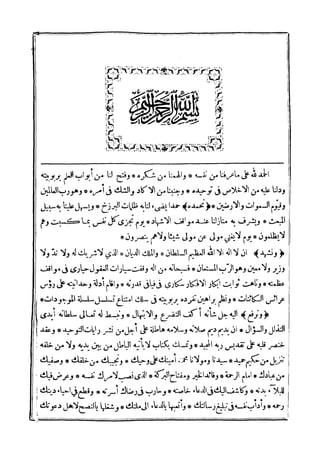 بسم الله الرحمن الرحيم
الحمد لله على ما عرفنا من نفسه * والهمنا من شكره * وفتح لنا من أبواب العلم بربوبيته
ودلنا عليه من الاخلاص فى توحيده * وجنبنا من الالحاد والشك فى أمره * وهو رب العالمين
وقيوم السموات والارضين * ﴿نحمده﴾ حمدا يضىء لنا به ظلمات البرزخ * ويسهل علينا به سبيل
المبعث * ويشرف به منازلنا عند مواقف الاشهاد * يوم تجزى كل نفس بما كسبت وهم
لا يظلمون * يوم لا يغنى مولى عن مولى شيئا ولا هم ينصرون *
﴿ونشهد﴾ ان لا اله الا الله العظيم السلطان * والملك الديان * الذى لا شريك له ولا ند ولا
وزير ولا معين وهو الرب المستعان * فسبحانه من اله وقفت سيارات العقول حيارى فى مواقف
عظمته * وتاهت ثوابت افكار الافكار سكارى فى فيافى قدرته * واقام أدلة وحدانيته على رؤس
عرائس الكائنات * ونظم براهين تفرده بربوبيته فى سلك امتناع تسلسل سلسلة الموجودات *
﴿ونرفع﴾ اليه جل شأنه أكف التضرع والابتهال * ونبسط له تعالى سلطانه أيدى
التذلل والسؤال * ان يديم ديم صلاته وسلامه هاطلة على أجل من نشر رايات التوحيد * وعقد
خنصر قلبه على تقديس ربه المجيد * وتمسك بكتاب لا يأتيه الباطل من بين يديه ولا من خلفه
تنزيل من حكيم حميد * سيدنا ومولانا محمد أمينك على وحيك * ونجيبك من خلقك * وصفيك
من عبادك * امام الرحمة * وقائد الخير ومفتاح البركة * الذى نصب لامرك نفسه * وعرض فيك
للبلاء بدنه * وكاشف اليك فى الدعاء خاصته * وحارب فى رضاك أسرته * وقطع فى احياء دينك
رحمه * وأدأب نفسه فى تبليغ رسالتك * وأتعبها بالدعاء الى ملتك * وشغلها بالنصح لاهل دعوتك